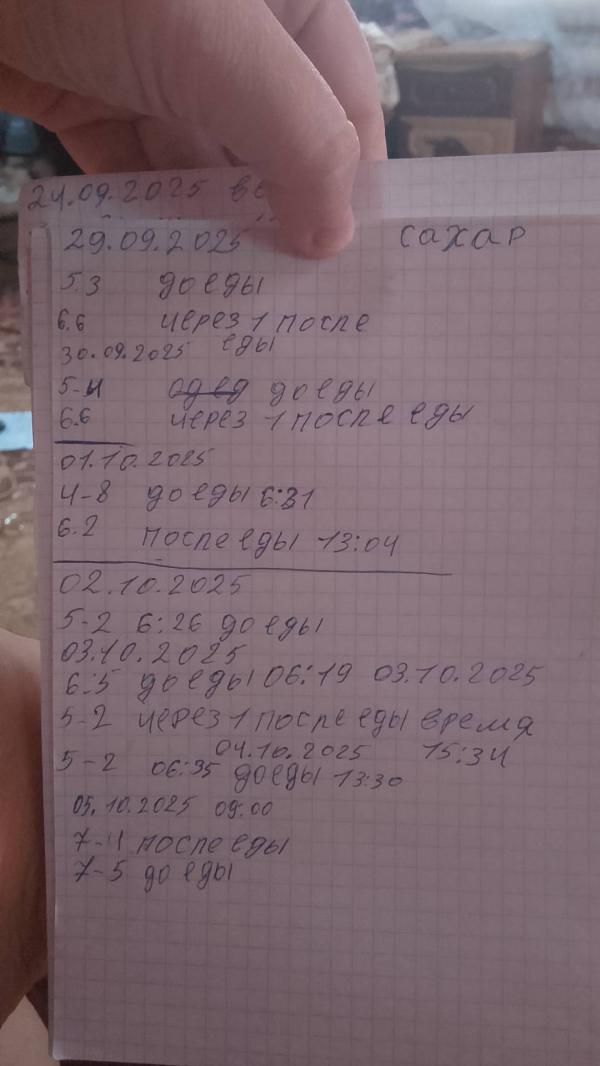 24.09.2025 ве
29.09.2025 сахар
5.3 до еды
6.6 через 1 после
еды
30.09.2025
5-4 до еды
6.6 через 1 после еды
01.10.2025
4-8 до еды 6:31
6.2 после еды 13:04
02.10.2025
5-2 6:26 до еды
03.10.2025
6:5 до еды 06:19 03.10.2025
5-2 через 1 после еды время
04.10.2025 15:34
5-2 06:35 до еды 13:30
05.10.2025 09:00
7-4 после еды
7-5 до еды